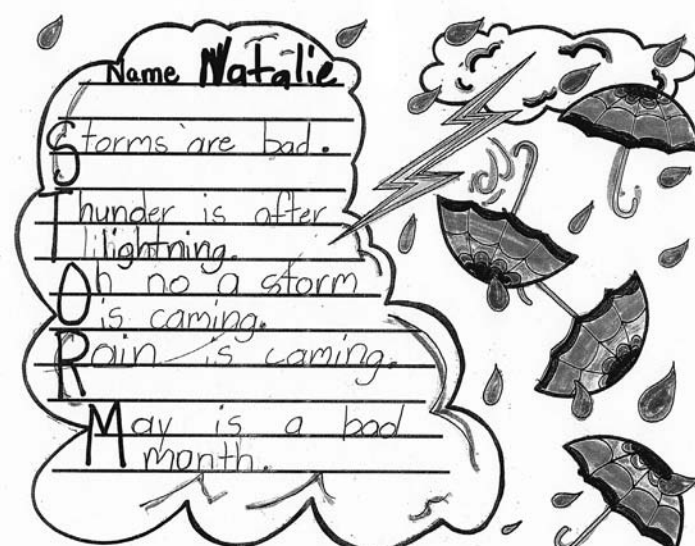 Name Natalie
Storms are bad.
Thunder is after
lilightning.
Oh no a storm
is caming.
Rain is caming.
May is a bad
month.